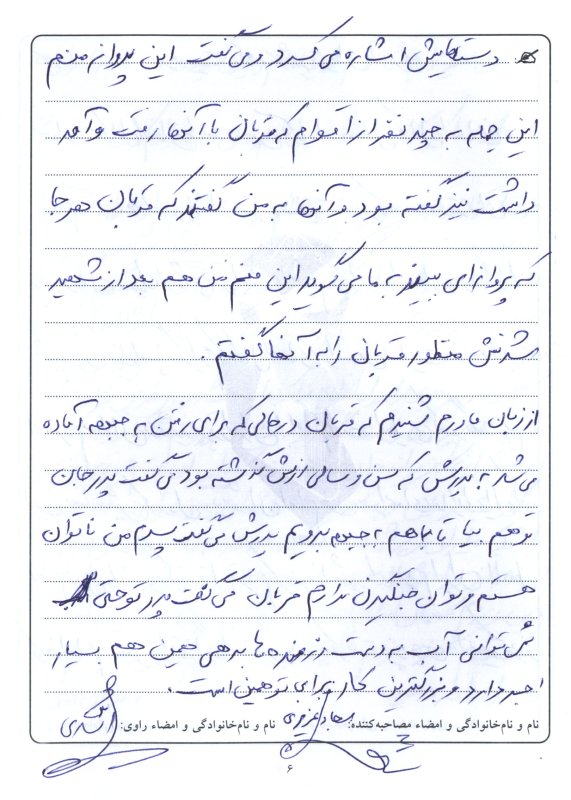 دستهایش اشاره می کرد و می گفت این پروانه منم
این جمله به چند نفر از اقوام که قربان با آنها رفت و آمد
داشت نیز گفته بود و آنها به من گفتند که قربان هر جا
که پروانه ای ببیند به ما می گوید این منم من هم بعد از شهید
شدنش منظور قربان را به آنها گفتم .
از زبان مادرم شنیدم که قربان در حالی که برای رفتن به جبهه آماده
می شد به پدرش که سن و سالی ازش گذشته بود می گفت پدر جان
تو هم بیا تا با هم به جبهه برویم پدرش می گفت پسرم من ناتوان
هستم و توان جنگیدن ندارم قربان می گفت پدر تو حتی
می توانی آب به دست رزمنده ها بدهی همین هم بسیار
اجر دارد و بزرگترین کار برای تو همین است .
نام و نام‌خانوادگی و امضاء مصاحبه‌کننده: نام و نام‌خانوادگی و امضاء راوی:
۶